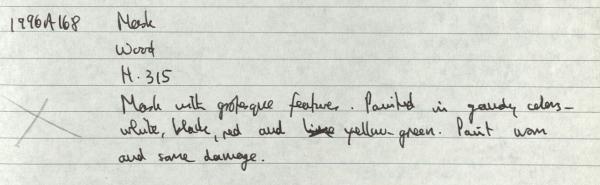 1996A168 Mask
Wood
H. 315
Mask with grotesque features. Painted in gaudy colors-
white, black, red and yellow-green. Paint worn
and some damage.